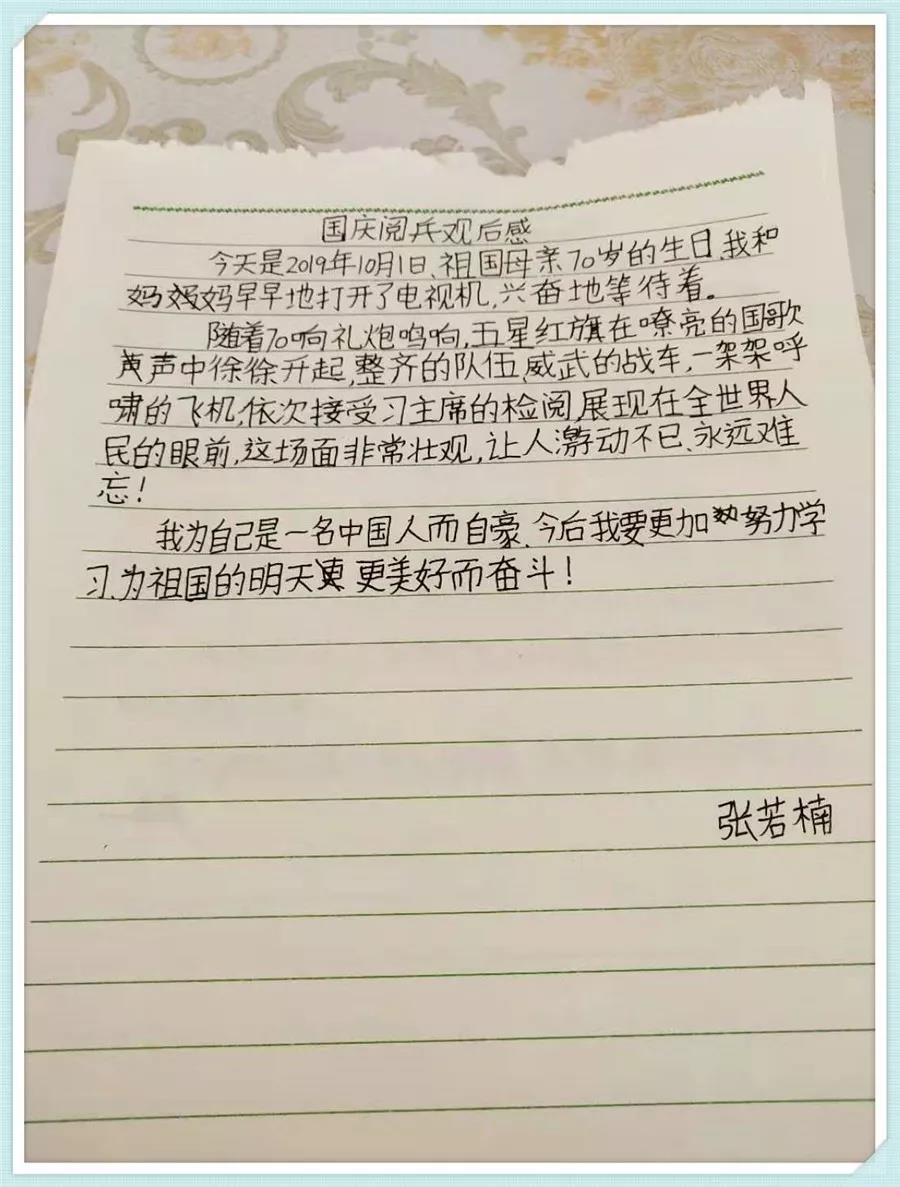 国庆阅兵观后感
今天是2019年10月1日、祖国母亲70岁的生日、我和
妈妈早早地打开了电视机,兴奋地等待着。
随着70响礼炮鸣响,五星红旗在嘹亮的国歌
声中徐徐升起,整齐的队伍、威武的战车,一架架呼
啸的飞机,依次接受习主席的检阅,展现在全世界人
民的眼前,这场面非常壮观,让人激动不已、永远难
忘!
我为自己是一名中国人而自豪、今后我要更加努力学
习、为祖国的明天更美好而奋斗!
张若楠